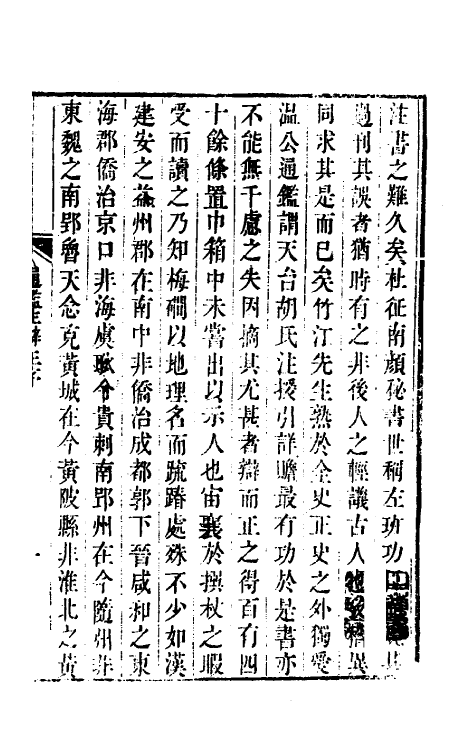 注書之難久矣杜征南顏秘書世稱左班功
過刊其誤者猶時有之非後人之輕議古人
同求其是而已矣竹汀先生熟於全史正史之外獨愛
温公通鑑謂天台胡氏注援引詳贍最有功於是書亦
不能無千慮之失因摘其尤甚者辯而正之得百有四
十餘條置巾箱中未嘗出以示人也宙襄於撰杖之暇
受而讀之乃知梅磵以地理名而疏踳處殊不少如漢
建安之益州郡在南中非僑治成都郭下晉咸和之東
海郡僑治京口非海虞耿令貴刺南郢州在今隨州非
東魏之南郢魯天念克黃城在今黃陂縣非淮北之黃
通鑑注辨正序